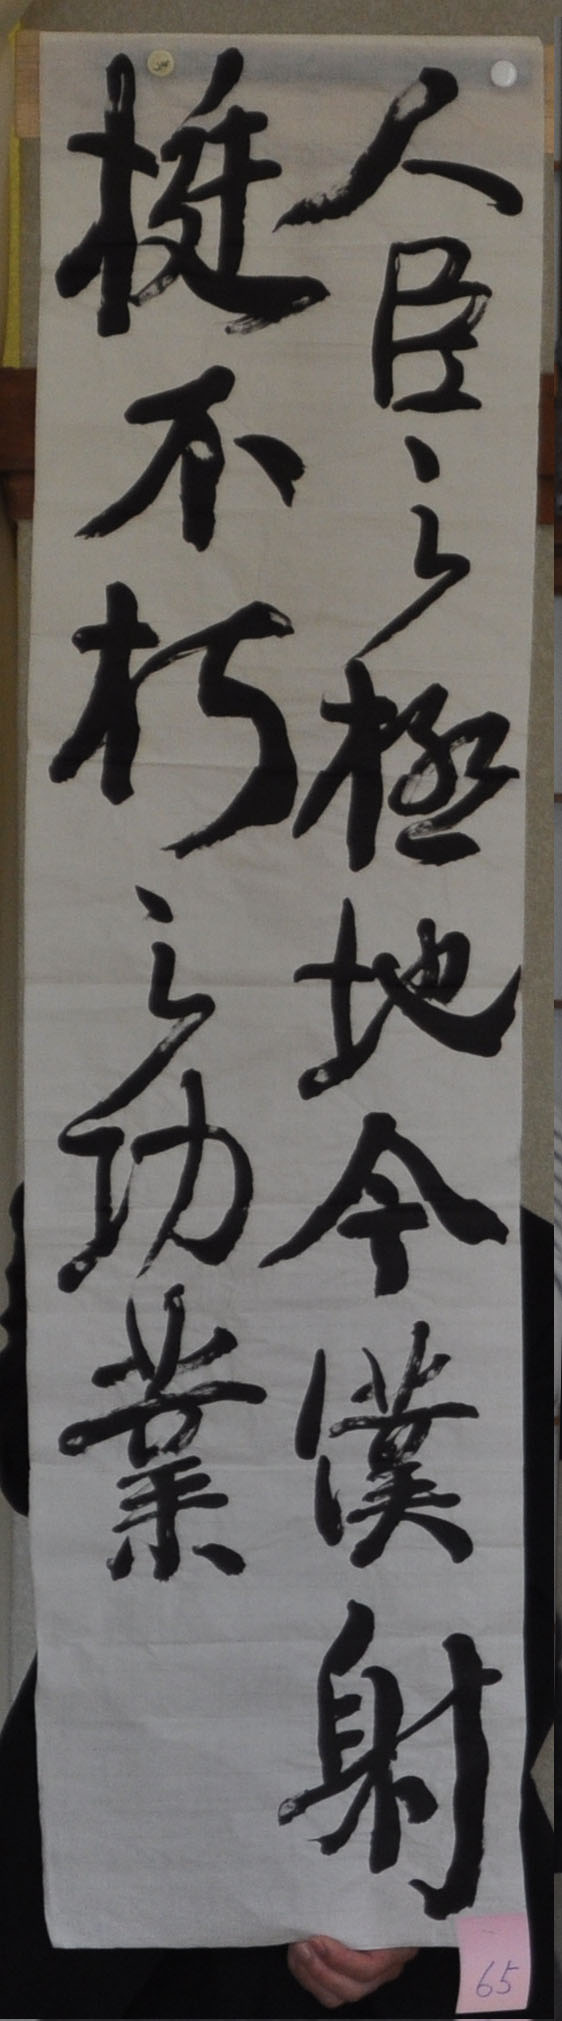 人臣之極地今僕射
挺不朽之功業
65